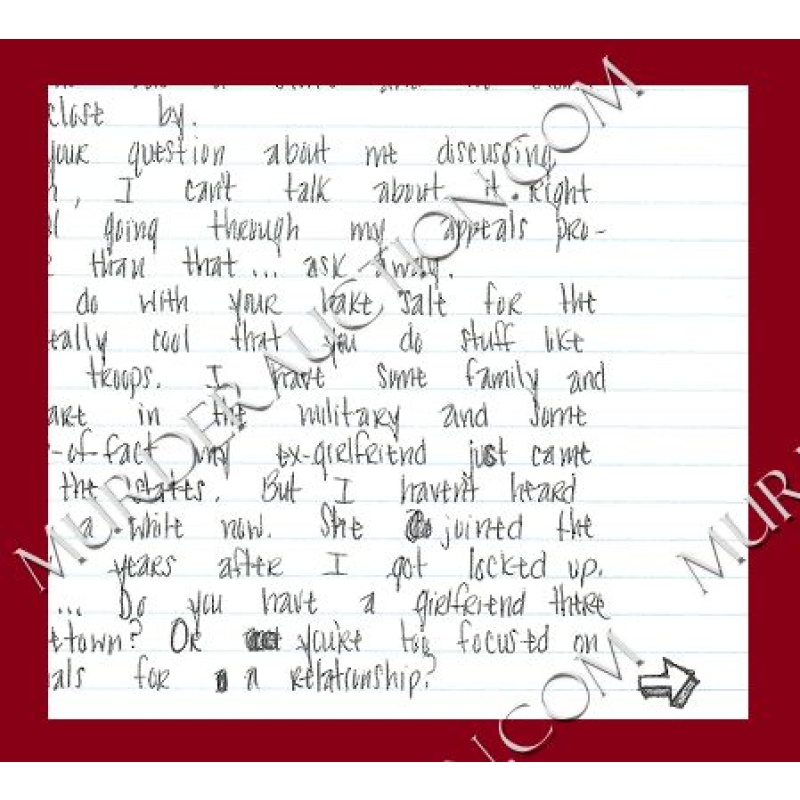 close by.
your question about me discussing
h, I can't talk about it. Right
going through my appeals pro-
than that... ask away.
do with your bake sale for the
eally cool that you do stuff like
troops. I have some family and
are in the military and some
-of-fact my ex-girlfriend just came
the states. But I haven't heard
a while now. She joined the
years after I got locked up.
... Do you have a girlfriend there
etown? Or you're too focused on
als for a relationship?
MURDERAUCTION.COM
MUR
N.COM